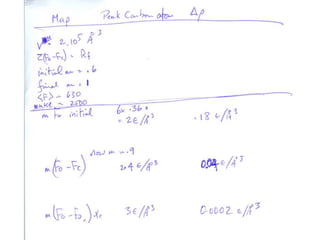 Map Peak Carbon atom Δρ
V = 2.10⁵ Å³
Σ(Fo-Fc) = Rf
initial m = .6
final m = .1
<F> = 650
nukc = 2500
m Fo initial 6x.36 = 2e/Å³ .18 e/Å³
now m = .9
m(Fo-Fc) 2.4 e/Å³ e/Å³
m(Fo-Fc) 3e/Å³ 0.0002 e/Å³